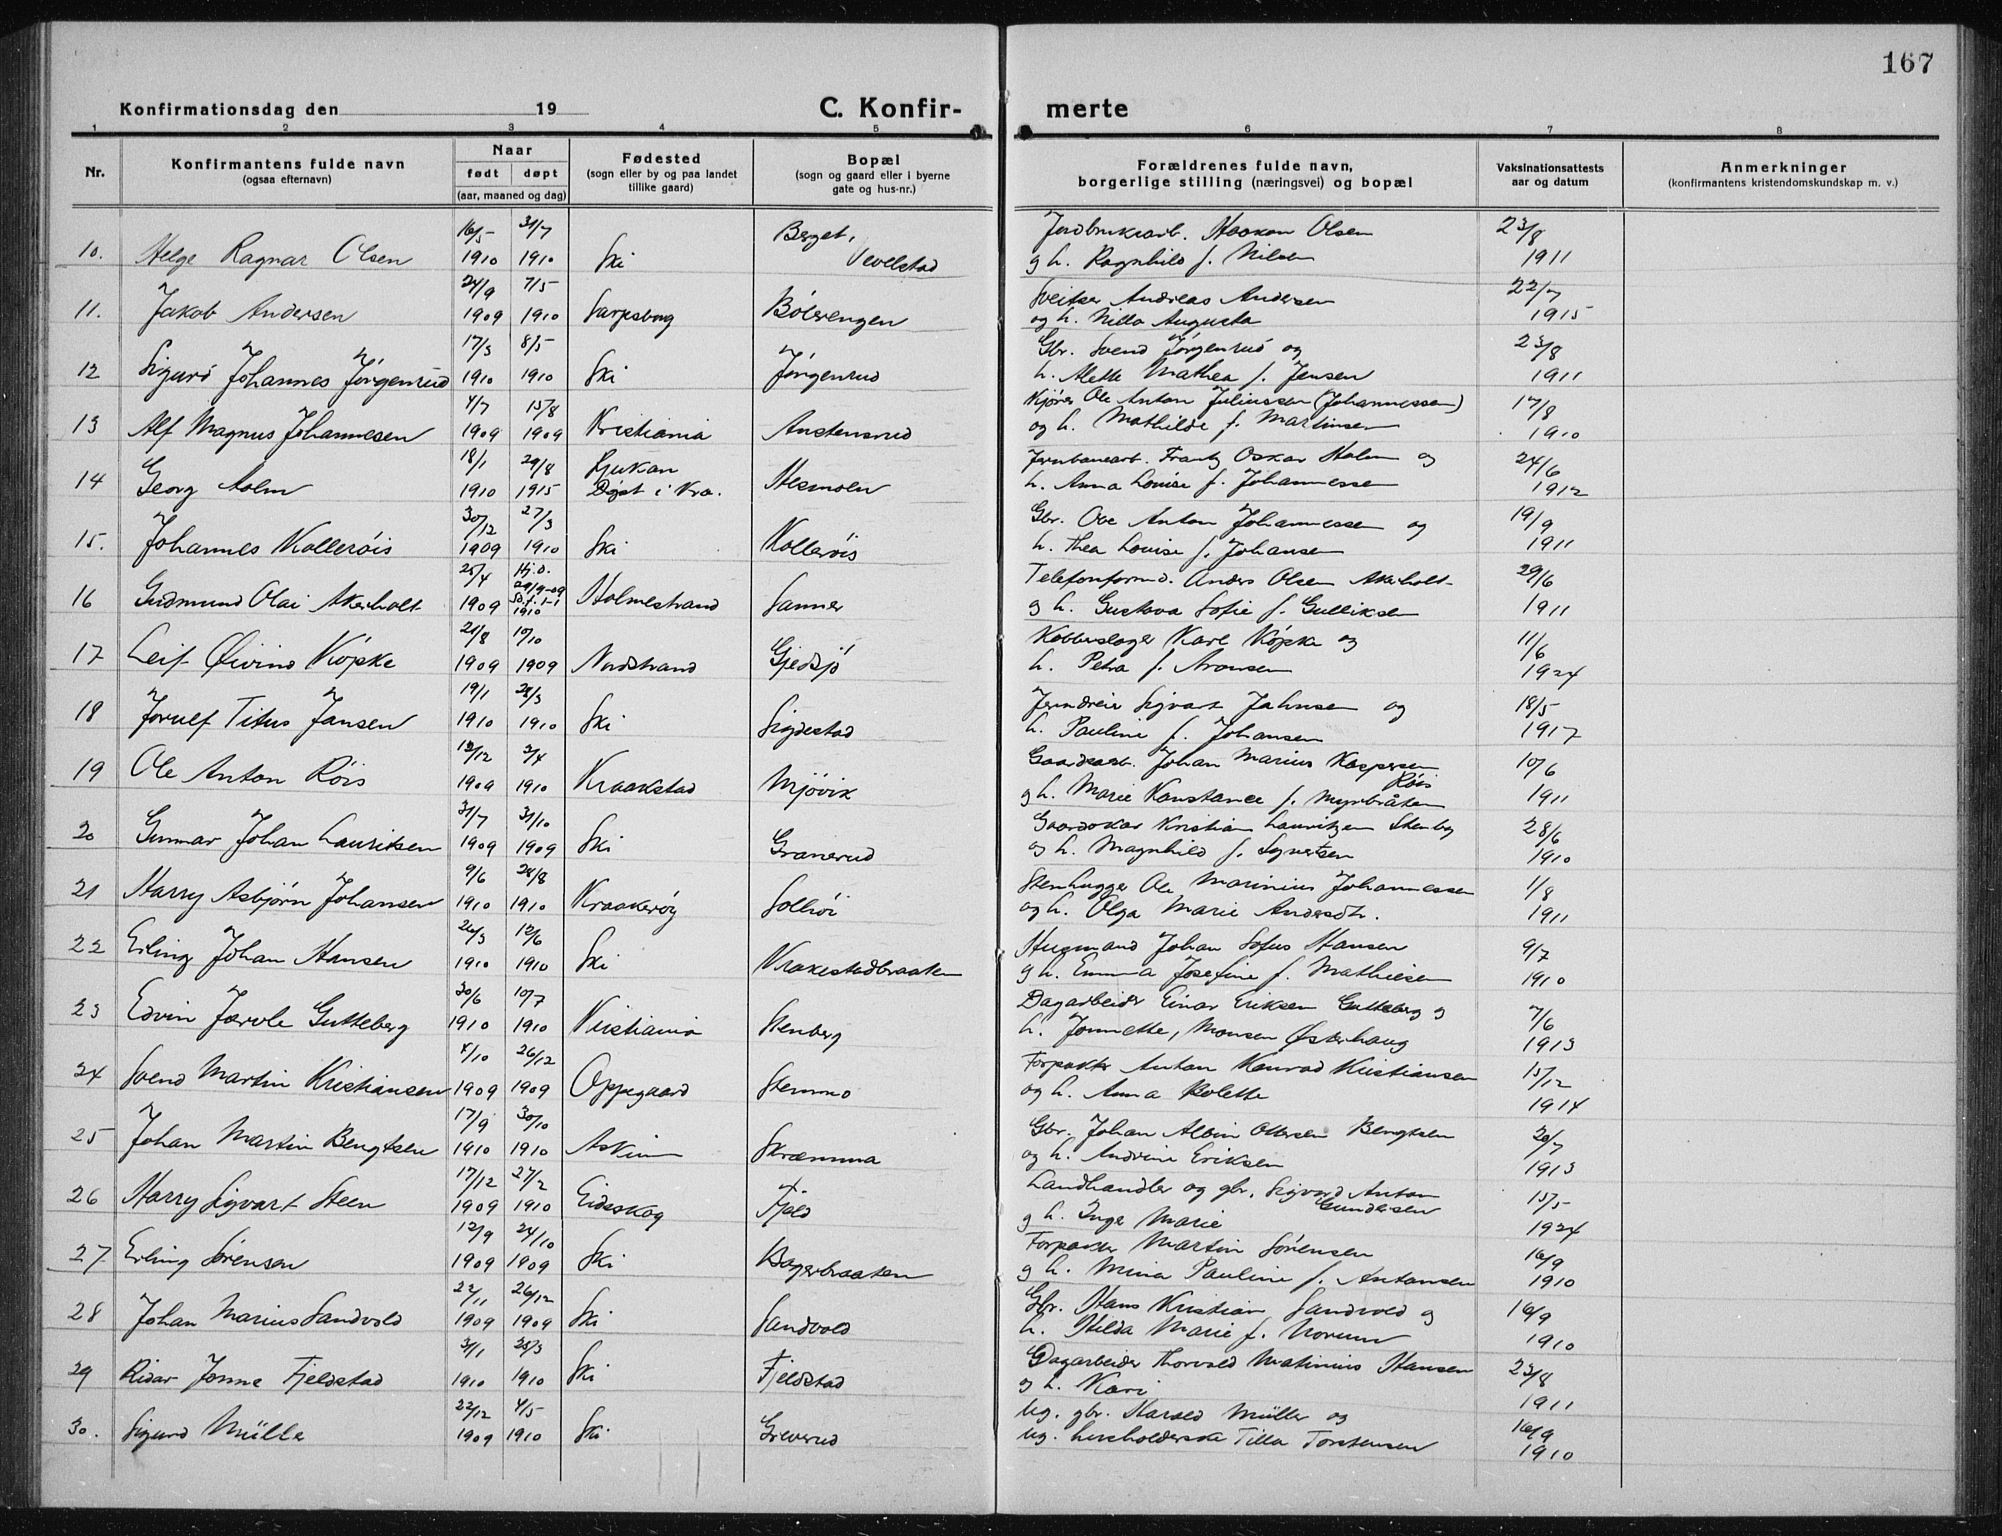 167
Konfirmationsdag den 19
C. Konfir- merte
1 2 3 4 5 6 7 8
Nr.
Konfirmantens fulde navn
(ogsaa efternavn)
Naar
født døpt
(aar, maaned og dag)
Fødested
(sogn eller by og paa landet
tillike gaard)
Bopæl
(sogn og gaard eller i byerne
gate og hus-nr.)
Forældrenes fulde navn,
borgerlige stilling (næringsvei) og bopæl
Vaksinationsattests
aar og datum
Anmerkninger
(konfirmantens kristendomskundskap m. v.)
16/5 31/7 Berget, Jordbruksarb. Haakon Olsen 23/8
10. Helge Ragnar Olsen 1910 1910 Ski Vevelstad g h. Ragnhild f. Nilsen 1911
24/9 7/5 Sveitser Andreas Andersen 22/7
11. Jakob Andersen 1909 1910 Sarpsborg Bölerengen og h. Milla Augusta 1915
17/3 8/5 Gbr. Svend Jörgenrud og 23/8
12 Sigurd Johannes Jörgenrud 1910 1910 Ski Jörgenrud h. Mette Mathea f. Jensen 1911
4/7 15/8 Kjörer Ole Anton Juliussen (Johannessen) 17/8
13 Alf Magnus Johannesen 1909 1909 Kristiania Austensrud og h. Mathilde f. Martinsen 1910
18/1 29/8 Rjukan Jernbanearb. Frantz Oskar Holm og 24/6
14 Georg Holm 1910 1915 Döpt i Kra. Hesmolen h. Anna Louise f. Johannessen 1912
30/12 27/3 Gbr. Ove Anton Johannessen og 19/9
15. Johannes Kolleröis 1909 1910 Ski Kolleröis h. Thea Louise f. Johansen 1911
25/4 Hj.d. 29/9-09 Telefonformd. Anders Olsen Akerholt 29/6
16 Gudmund Olai Akerholt 1909 St.f. 1-1 1910 Holmestrand Sanner g h. Gustava Sofie f. Gulliksen 1911
21/8 10/10 Kobberslager Karl Köpke og 11/6
17 Leif Øivind Köpke 1909 1909 Nordstrand Gjedsjö h. Petra f. Aronsen 1924
19/1 28/3 Jerndreier Sigvart Jahnsen og 18/5
18 Jorulf Titus Jansen 1910 1910 Ski Sigdestad h. Pauline f. Johansen 1917
12/12 3/4 Gaardsarb. Johan Marius Kaspersen Röis 10/6
19 Ole Anton Röis 1909 1910 Kraakstad Mjövik g h. Marie Konstance f. Myrbråten 1911
31/7 31/10 Kristian Lauritzen Stenberg 28/6
20 Gunnar Johan Lauriksen 1909 1909 Ski Granerud og h. Magnhild f. Syvertsen 1910
9/6 28/8 Stenhugger Ole Marinius Johannessen 1/8
21 Harry Asbjørn Johansen 1910 1910 Kraakerøy Solhöi og h. Olga Marie Andersdtr. 1911
26/3 12/6 Hugmand Johan Sofus Hansen 9/7
22 Erling Johan Hansen 1910 1910 Ski Vrakestadbraaten g h. Emma Josefine f. Mathiesen 1910
30/6 10/7 Dagarbeider Einar Eriksen Gutteberg g 7/6
23 Edvin Jarle Gutteberg 1910 1910 Kristiania Stenberg h. Jonnette, Monsen Østerhaug 1913
4/10 26/12 Forpakter Anton Konrad Kristiansen 15/12
24 Svend Martin Kristiansen 1909 1909 Oppegaard Stenmo og h. Anna Bolette 1914
17/9 30/10 Gbr. Johan Albin Ottersen Bengtsen 20/7
25 Johan Martin Bengtsen 1910 1910 Askim Skræmma og h. Andrine Eriksen 1913
17/12 27/2 Landhandler og gbr. Sigvard Anton Gundersen 15/5
26 Harry Sigvart Steen 1909 1910 Eidsskog Fjeld g h. Inga Marie 1924
12/9 24/10 Forpakter Martin Sörensen 16/9
27 Erling Sörensen 1909 1909 Ski Bagerbraaten g h. Mina Pauline f. Antonsen 1910
22/11 26/12 Gbr. Hans Kristian Sandvold g 16/9
28 Johan Marius Sandvold 1909 1909 Ski Sandvold h. Hilda Marie f. Norum 1910
3/1 25/3 Dagarbeider Thorvald Matinius Hansen 23/8
29 Ridar Jonne Fjeldstad 1910 1910 Ski Fjeldstad g h. Kari 1911
22/12 4/5 Ug. gbr. Harald Müller og 16/9
30. Sigurd Müller 1909 1910 Ski Greverud ug. husholderske Tilla Torstensen 1910